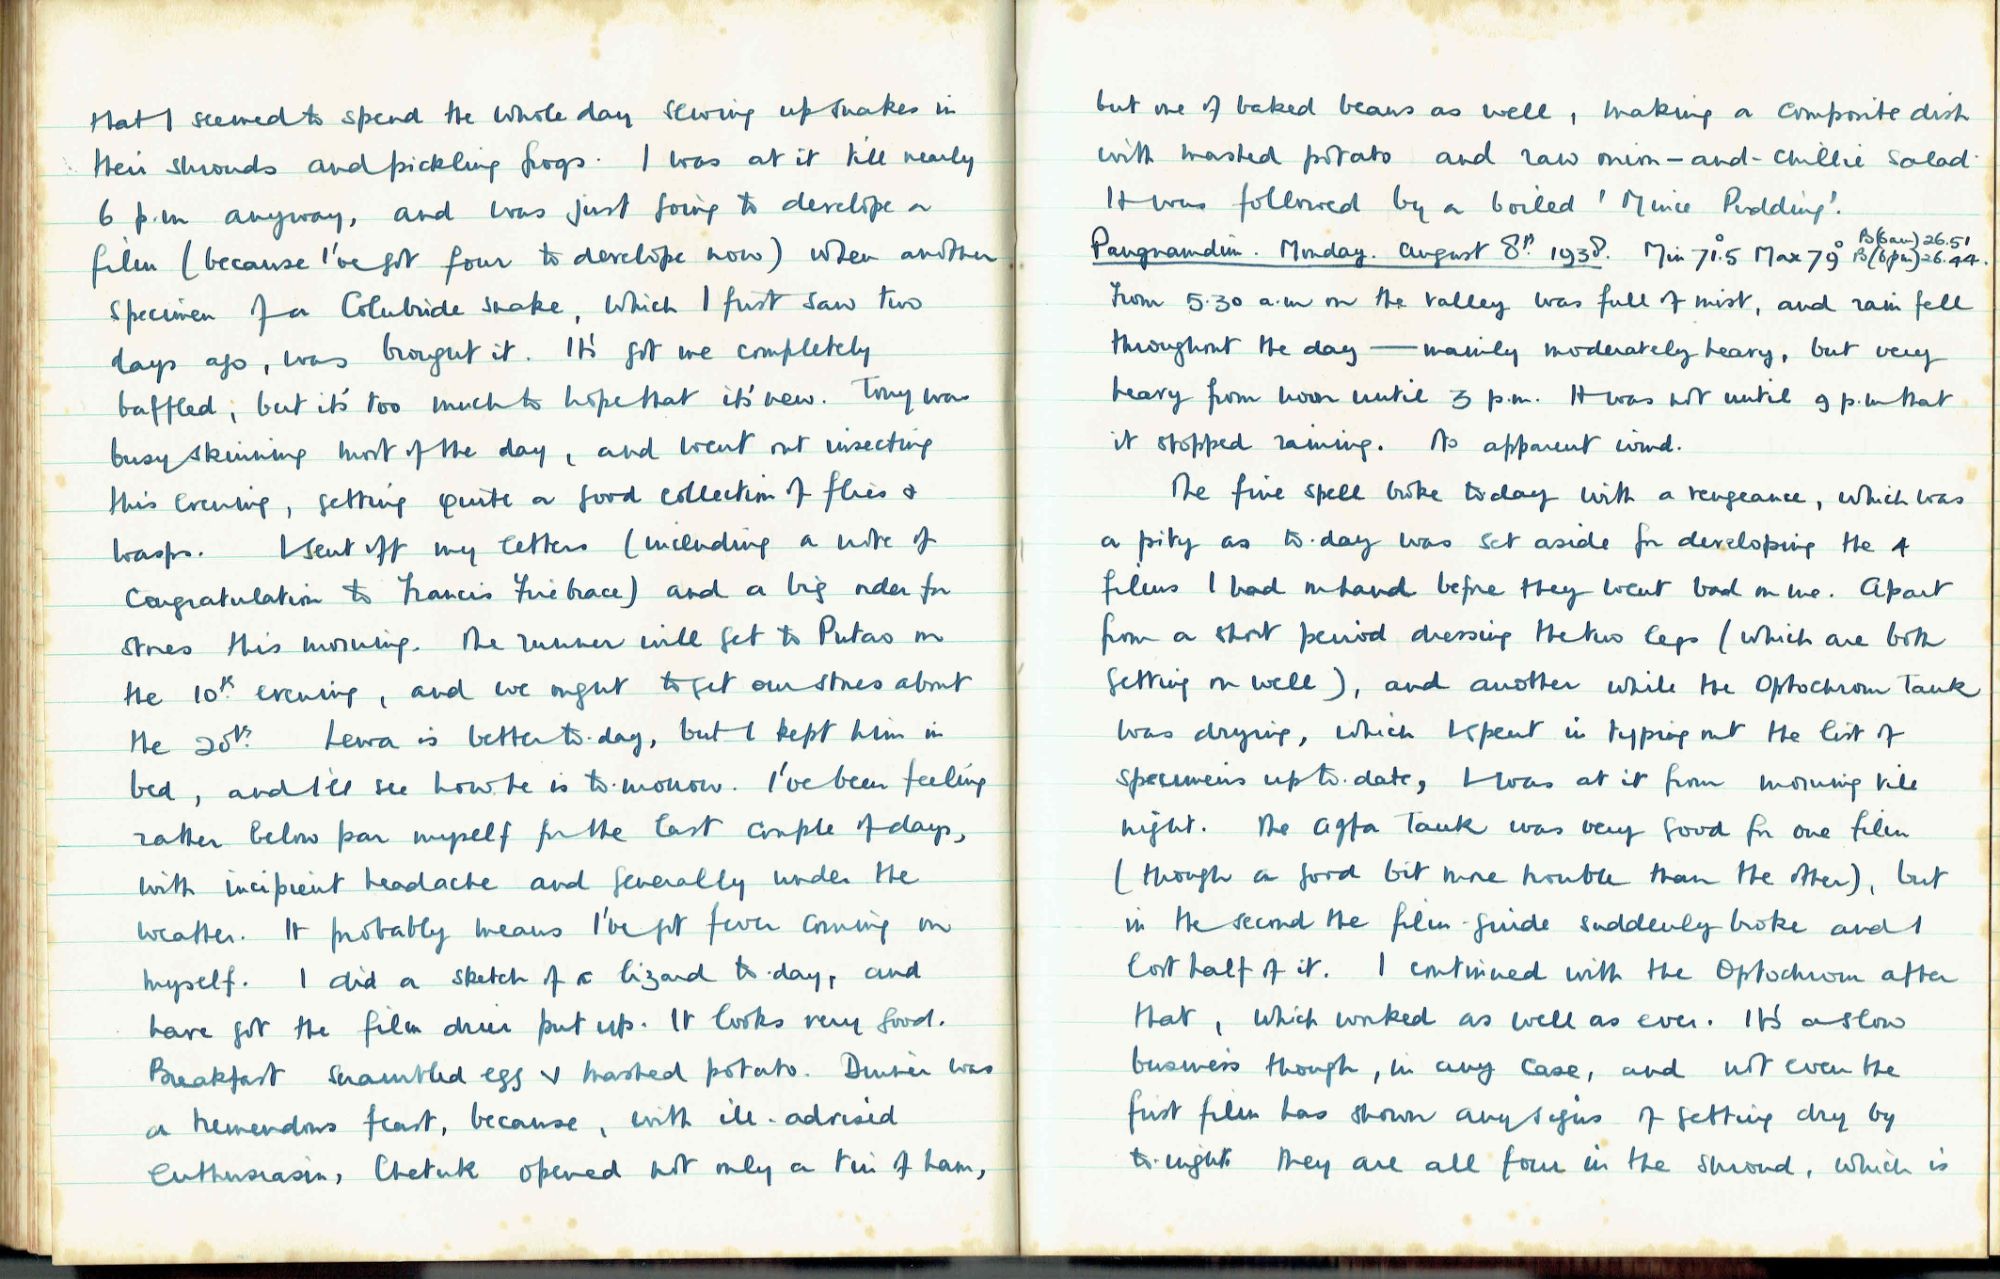 that I seemed to spend the whole day sewing up snakes in
their shrouds and pickling frogs. I was at it till nearly
6 p.m anyway, and was just going to develope a
film (because I've got four to develope now) when another
specimen of a Colubride snake, which I first saw two
days ago, was brought it. It's got me completely
baffled; but it's too much to hope that it's new. Tony was
busy skinning most of the day, and went out insecting
this evening, getting quite a good collection of flies &
wasps. I sent off my letters (including a note of
Congratulation to Francis Firebrace) and a big order for
stores this morning. The runner will get to Putao on
the 10th evening, and we ought to get our stores about
the 20th. Lewa is better to-day, but I kept him in
bed, and I'll see how he is to-morrow. I've been feeling
rather below par myself for the last couple of days,
with incipient headache and generally under the
weather. It probably means I've got fever coming on
myself. I did a sketch of a lizard to-day, and
have got the film drier put up. It looks very good.
Breakfast scrambled egg & mashed potato. Dinner was
a tremendous feast, because, with ill-advised
enthusiasm, Chetuk opened not only a tin of ham,
but one of baked beans as well, making a composite dish
with mashed potato and raw onion-and-chillie salad.
It was followed by a boiled 'Mince Pudding'.
Pangnamdim. Monday. August 8th 1938. Min 71°.5 Max 79° B(6am) 26.51 B(6pm) 26.44.
From 5.30 a.m on the valley was full of mist, and rain fell
throughout the day — mainly moderately heavy, but very
heavy from noon until 3 p.m. It was not until 9 p.m that
it stopped raining. No apparent wind.
The fine spell broke today with a vengeance, which was
a pity as to-day was set aside for developing the 4
films I had on hand before they went bad on me. Apart
from a short period dressing the two legs (which are both
getting on well), and another while the Optochrom Tank
was drying, which I spent in typing out the list of
specimens up to-date, I was at it from morning till
night. The Agfa Tank was very good for one film
(though a good bit more trouble than the other), but
in the second the film-guide suddenly broke and I
lost half of it. I continued with the Optochrom after
that, which worked as well as ever. It's a slow
business though, in any case, and not even the
first film has shown any signs of getting dry by
to-night. They are all four in the shroud, which is